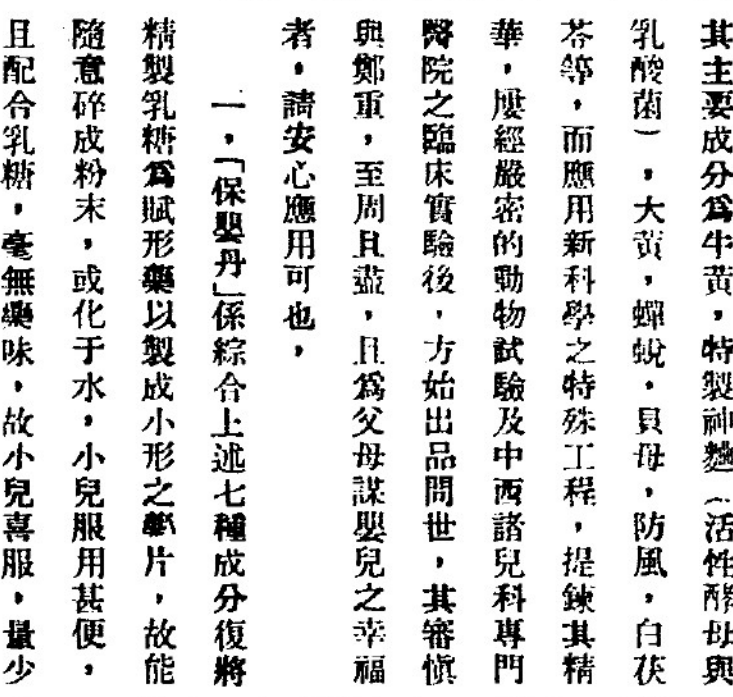 其主要成分爲牛黃，特製神麯（活性酵母與
乳酸菌），大黃，蟬蛻，貝母，防風，白茯
苓等，而應用新科學之特殊工程，提鍊其精
華，屢經嚴密的動物試驗及中西諸兒科專門
醫院之臨床實驗後，方始出品問世，其審慎
與鄭重，至周且盡，且爲父母謀嬰兒之幸福
者，請安心應用可也，
一，「保嬰丹」係綜合上述七種成分復將
精製乳糖爲賦形藥以製成小形之藥片，故能
隨意碎成粉末，或化于水，小兒服用甚便，
且配合乳糖，毫無藥味，故小兒喜服，量少